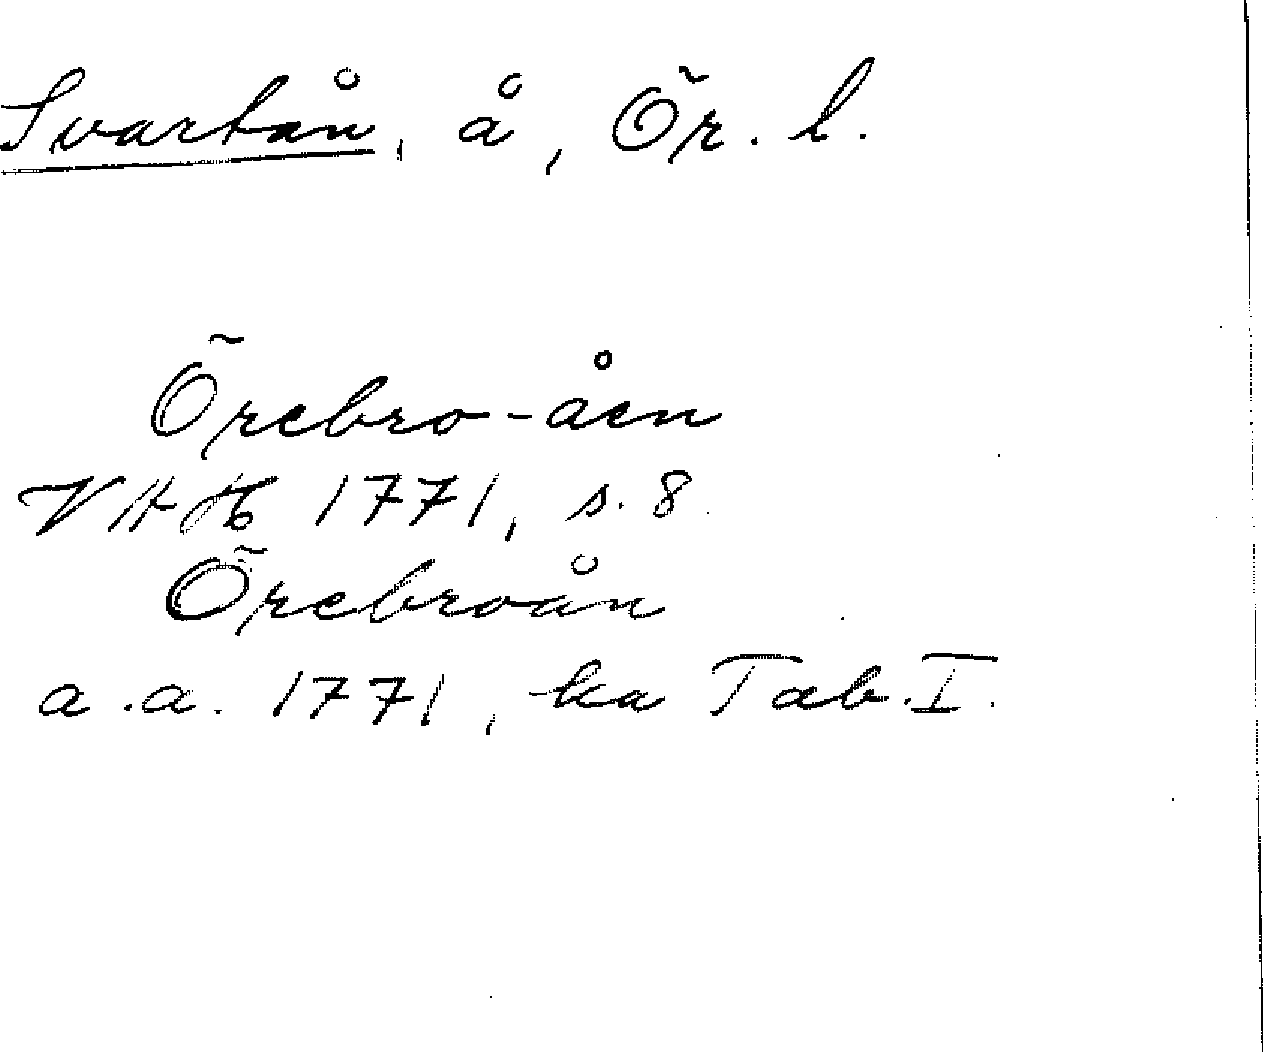 Svartån, å, Ör. l.
Örebro-åen
VAH 1771, s. 8.
Örebroån
a.a. 1771, ka Tab. I.